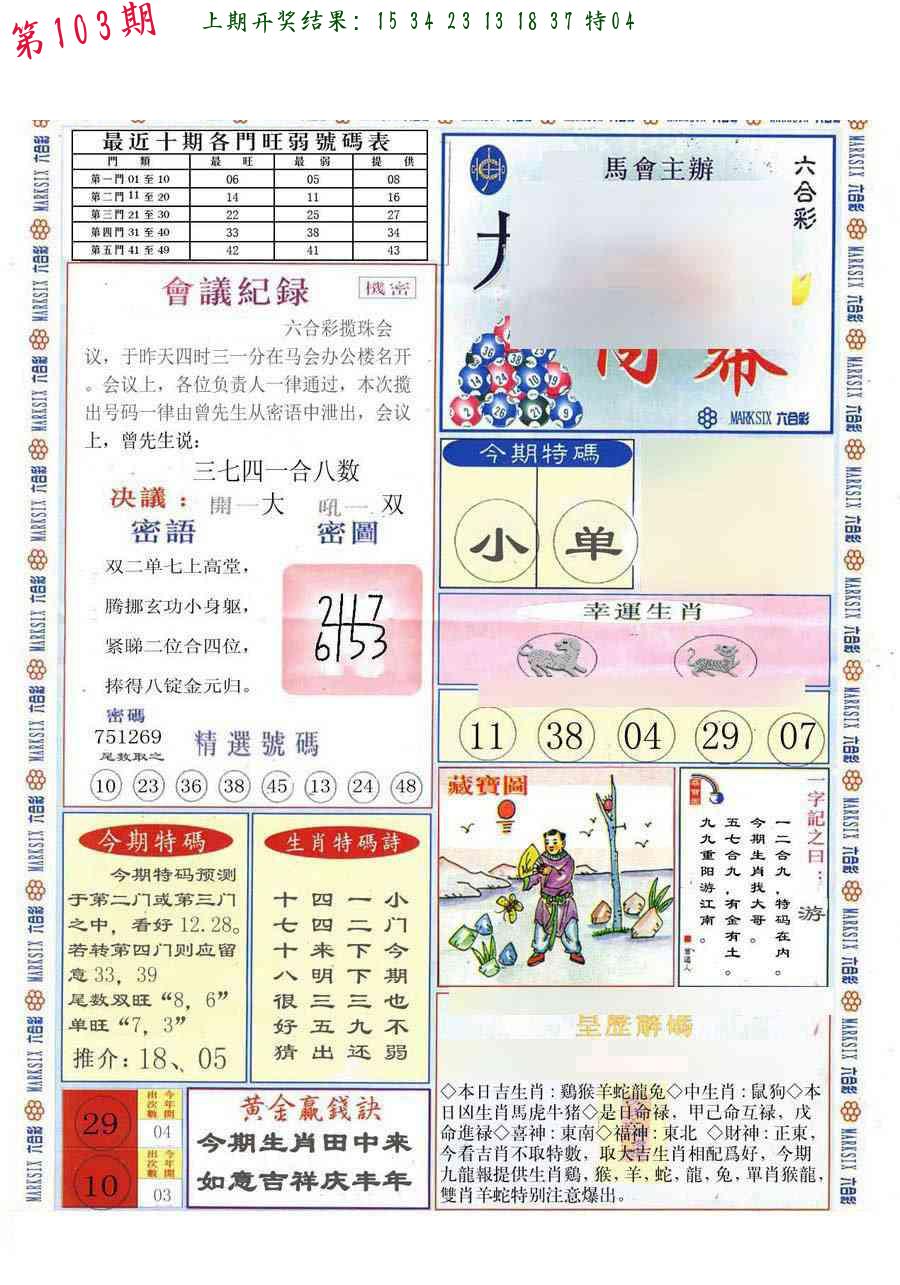 第103期
上期开奖结果: 15 34 23 13 18 37 特04
最近十期各門旺弱號碼表
門 類 最 旺 最 弱 提 供
第一門 01 至 10 06 05 08
第二門 11 至 20 14 11 16
第三門 21 至 30 22 25 27
第四門 31 至 40 33 38 34
第五門 41 至 49 42 41 43
會議紀録 機密
六合彩揽珠会
议，于昨天四时三一分在马会办公楼名开
。会议上，各位负责人一律通过，本次揽
出号码一律由曾先生从密语中泄出，会议
上，曾先生说:
三七四一合八数
决議： 開一大 吼一双
密語 密圖
双二单七上高堂，
腾挪玄功小身躯，
紧睇二位合四位，
捧得八锭金元归。
2117
6153
密碼
751269
尾数取之
精選號碼
10 23 36 38 45 13 24 48
馬會主辦
六合彩
MARKSIX 六合彩
今期特碼
小 单
幸運生肖
11 38 04 29 07
藏寶圖
一字記之曰：游
一二合九，特码在内。
今期生肖找大哥。
五七合九，有金有土。
九九重阳游江南。
曾道人
今期特碼
今期特码预测
于第二门或第三门
之中，看好 12.28。
若转第四门则应留
意 33，39
尾数双旺“8，6”
单旺“7，3”
推介: 18、05
生肖特碼詩
小门今期也不弱
一二下下三九还
四四来明三五出
十七十八很好猜
29 今年開出次數 04
10 今年開出次數 03
黄金赢錢訣
今期生肖田中来
如意吉祥庆丰年
呈歷解碼
◇本日吉生肖：鷄猴羊蛇龍兔◇中生肖：鼠狗◇本
日凶生肖馬虎牛猪◇是日命禄，甲己命互禄，戌
命進禄◇喜神：東南◇福神：東北 ◇財神：正東，
今看吉肖不取特數，取大吉生肖相配爲好，今期
九龍報提供生肖鷄，猴，羊，蛇，龍，兔，單肖猴龍，
雙肖羊蛇特别注意爆出。